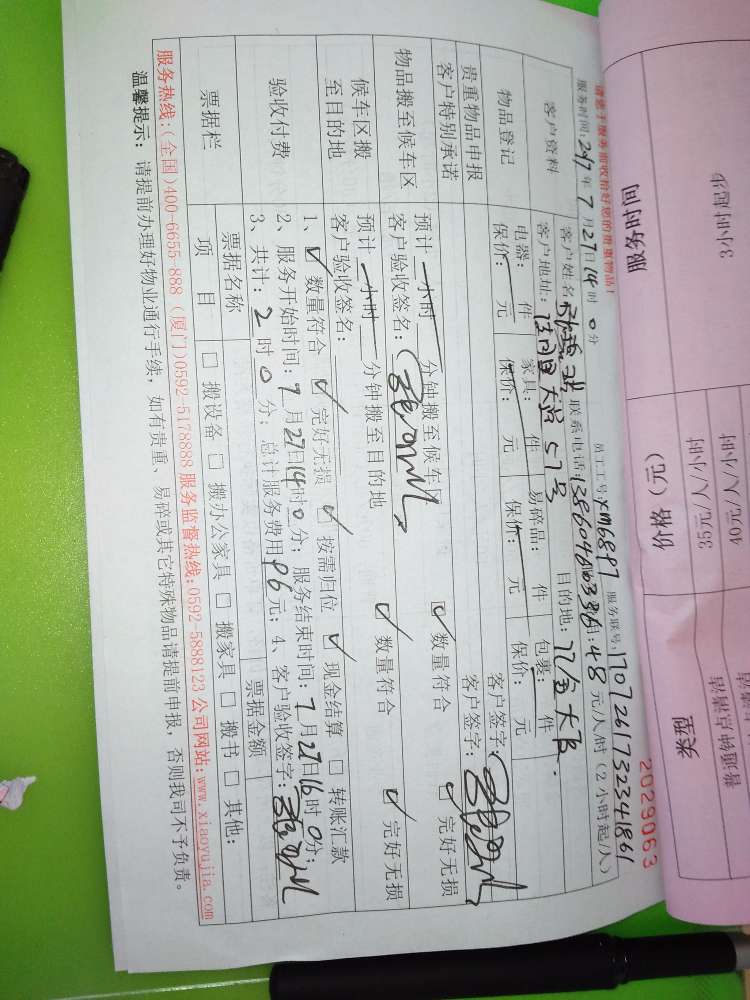 2029063
请您于服务前收拾好您的贵重物品!
员工工号:XM6897 服务联号:170726173234861
服务时间:2017年7月27日14时0分
48元/人/时(2小时起/人)
客户资料
客户姓名: 联系电话:
客户地址: 57号 目的地:
物品登记
电器: 件 家具: 件 易碎品: 件 包裹: 件
保价: 元 保价: 元 保价: 元 保价: 元
贵重物品申报 客户签字:
客户特别承诺 客户签字:
物品搬至候车区
预计一小时 分钟搬至候车区 数量符合 完好无损
客户验收签名:
候车区搬至目的地
预计一小时 分钟搬至目的地 数量符合 完好无损
客户验收签名:
验收付费
1、数量符合 完好无损 按需归位 现金结算 转账汇款
2、服务开始时间:7月27日14时0分;服务结束时间:7月27日16时0分;
3、共计:2时0分;总计服务费用96元;4、客户验收签字:
票据栏
票据名称 票据金额
项目 搬设备 搬办公家具 搬家具 搬书 其他:
服务热线:(全国)400-6655-888 (厦门)0592-5178888 服务监督热线:0592-5888123 公司网站:www.xiaoyujia.com
温馨提示: 请提前办理好物业通行手续,如有贵重、易碎或其它特殊物品请提前申报,否则我司不予负责。
类型 价格(元) 服务时间
普通钟点清洁 35元/人/小时 3小时起步
40元/人/小时